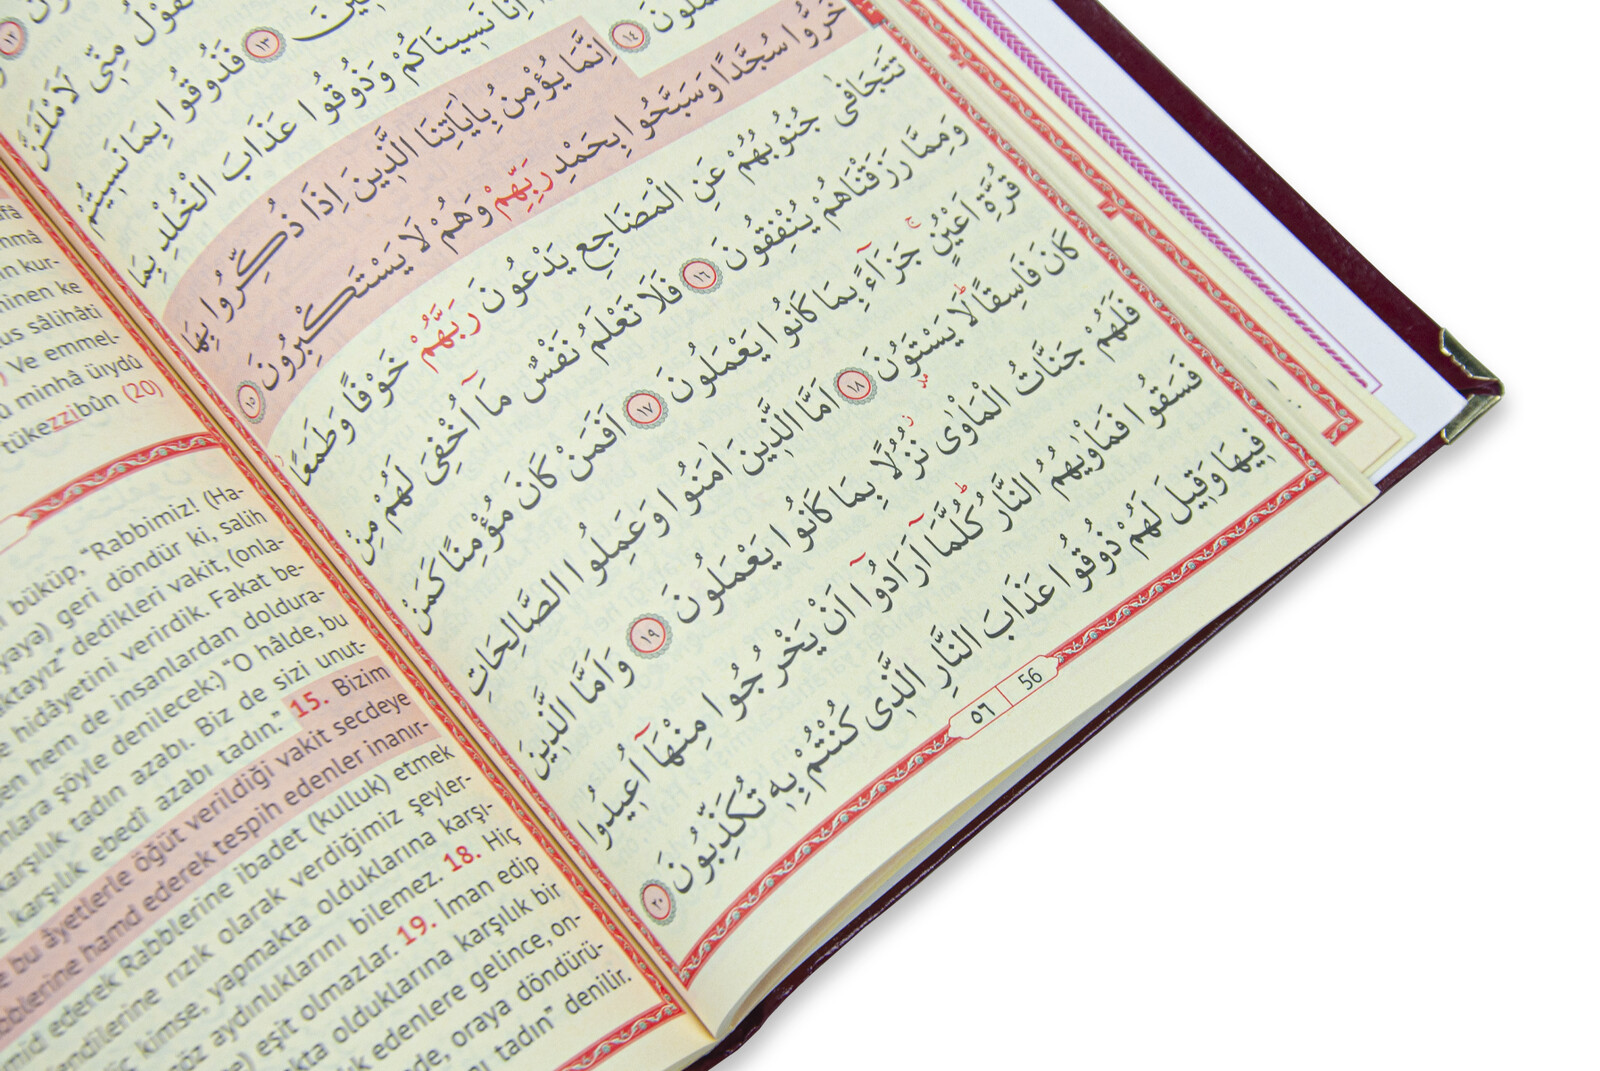 لَا يَقُولُ مِنّ۪ي لَاَمْلَـَٔنَّ
١٣ فَذُوقُوا بِمَا نَس۪يتُمْ
اِنَّا نَس۪ينَاكُمْ وَذُوقُوا عَذَابَ الْخُلْدِ بِمَا
١٤ اِنَّمَا يُؤْمِنُ بِاٰيَاتِنَا الَّذ۪ينَ اِذَا ذُكِّرُوا بِهَا
خَرُّوا سُجَّدًا وَسَبَّحُوا بِحَمْدِ رَبِّهِمْ وَهُمْ لَا يَسْتَكْبِرُونَ ١٥
تَتَجَافٰى جُنُوبُهُمْ عَنِ الْمَضَاجِعِ يَدْعُونَ رَبَّهُمْ خَوْفًا وَطَمَعًا
وَمِمَّا رَزَقْنَاهُمْ يُنْفِقُونَ ١٦ فَلَا تَعْلَمُ نَفْسٌ مَٓا اُخْفِيَ لَهُمْ مِنْ
قُرَّةِ اَعْيُنٍۚ جَزَٓاءً بِمَا كَانُوا يَعْمَلُونَ ١٧ اَفَمَنْ كَانَ مُؤْمِنًا كَمَنْ
كَانَ فَاسِقًاۜ لَا يَسْتَوُ۫نَ ١٨ اَمَّا الَّذ۪ينَ اٰمَنُوا وَعَمِلُوا الصَّالِحَاتِ
فَلَهُمْ جَنَّاتُ الْمَأْوٰىۘ نُزُلًا بِمَا كَانُوا يَعْمَلُونَ ١٩ وَاَمَّا الَّذ۪ينَ
فَسَقُوا فَمَأْوٰيهُمُ النَّارُۜ كُلَّمَٓا اَرَادُٓوا اَنْ يَخْرُجُوا مِنْهَٓا اُع۪يدُوا
ف۪يهَا وَق۪يلَ لَهُمْ ذُوقُوا عَذَابَ النَّارِ الَّذ۪ي كُنْتُمْ بِه۪ تُكَذِّبُونَ ٢٠
٥٦ 56
kur-
minen ke
sâlihâti
Ve emmel-
minhâ üıydû
tükezzibûn (20)
büküp, “Rabbimiz! (Ha-
geri döndür ki, salih
dedikleri vakit, (onla-
hidâyetini verirdik. Fakat be-
hem de insanlardan doldura-
şöyle denilecek:) “O hâlde, bu
karşılık tadın azabı. Biz de sizi unut-
karşılık ebedî azabı tadın.” 15. Bizim
bu âyetlerle öğüt verildiği vakit secdeye
Rabblerine hamd ederek tespih edenler inanır-
ederek Rabblerine ibadet (kulluk) etmek
kendilerine rızık olarak verdiğimiz şeyler-
kimse, yapmakta olduklarına karşı-
göz aydınlıklarını bilemez. 18. Hiç
eşit olmazlar. 19. İman edip
olduklarına karşılık bir
edenlere gelince, on-
oraya döndürü-
tadın” denilir.